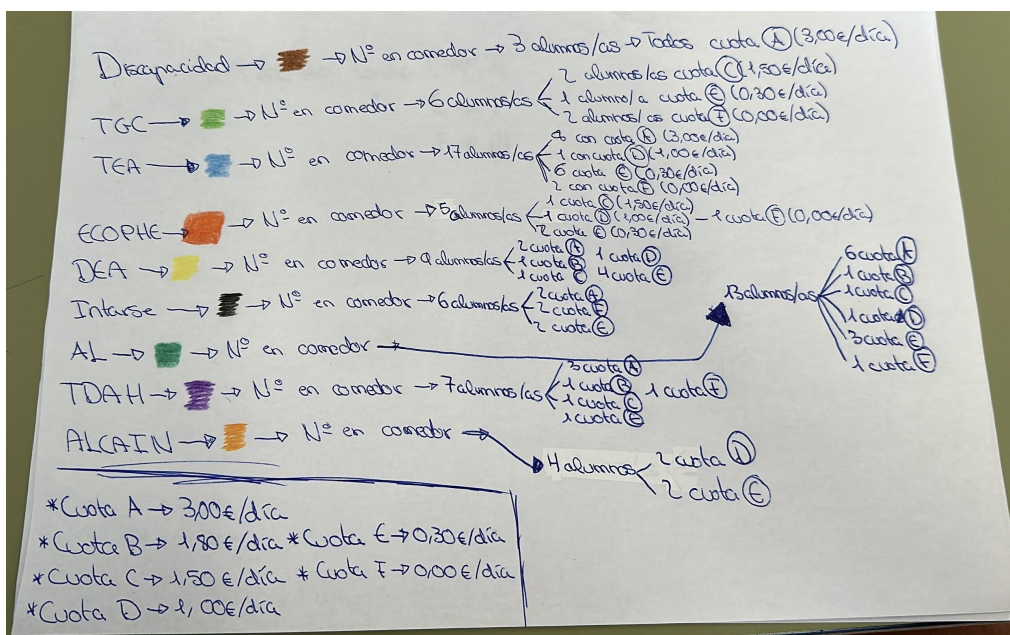 Discapacidad → → Nº en comedor → 3 alumnos/as → Todos cuota Ⓐ (3,00€/día)
TGC → → Nº en comedor → 6 alumnos/as
2 alumnos/as cuota Ⓒ (1,50€/día)
1 alumno/a cuota Ⓔ (0,30€/día)
2 alumnos/as cuota Ⓕ (0,00€/día)
TEA → → Nº en comedor → 17 alumnos/as
8 con cuota Ⓐ (3,00€/día)
1 con cuota Ⓓ (1,00€/día)
6 cuota Ⓔ (0,30€/día)
2 con cuota Ⓕ (0,00€/día)
ECOPHE → → Nº en comedor → 5 alumnos/as
1 cuota Ⓒ (1,50€/día)
1 cuota Ⓓ (1,00€/día) – 1 cuota Ⓕ (0,00€/día)
2 cuota Ⓔ (0,30€/día)
DEA → → Nº en comedor → 9 alumnos/as
2 cuota Ⓐ 1 cuota Ⓓ
1 cuota Ⓑ
1 cuota Ⓒ 4 cuota Ⓔ
Intarse → → Nº en comedor → 6 alumnos/as
2 cuota Ⓐ
2 cuota Ⓕ
2 cuota Ⓔ
AL → → Nº en comedor → 13 alumnos/as
6 cuota Ⓐ
1 cuota Ⓑ
1 cuota Ⓒ
1 cuota Ⓓ
3 cuota Ⓔ
1 cuota Ⓕ
TDAH → → Nº en comedor → 7 alumnos/as
3 cuota Ⓐ
1 cuota Ⓑ 1 cuota Ⓕ
1 cuota Ⓒ
1 cuota Ⓔ
ALCAIN → → Nº en comedor → 4 alumnos
2 cuota Ⓓ
2 cuota Ⓔ
*Cuota A → 3,00€/día
*Cuota B → 1,80€/día *Cuota E → 0,30€/día
*Cuota C → 1,50€/día *Cuota F → 0,00€/día
*Cuota D → 1,00€/día